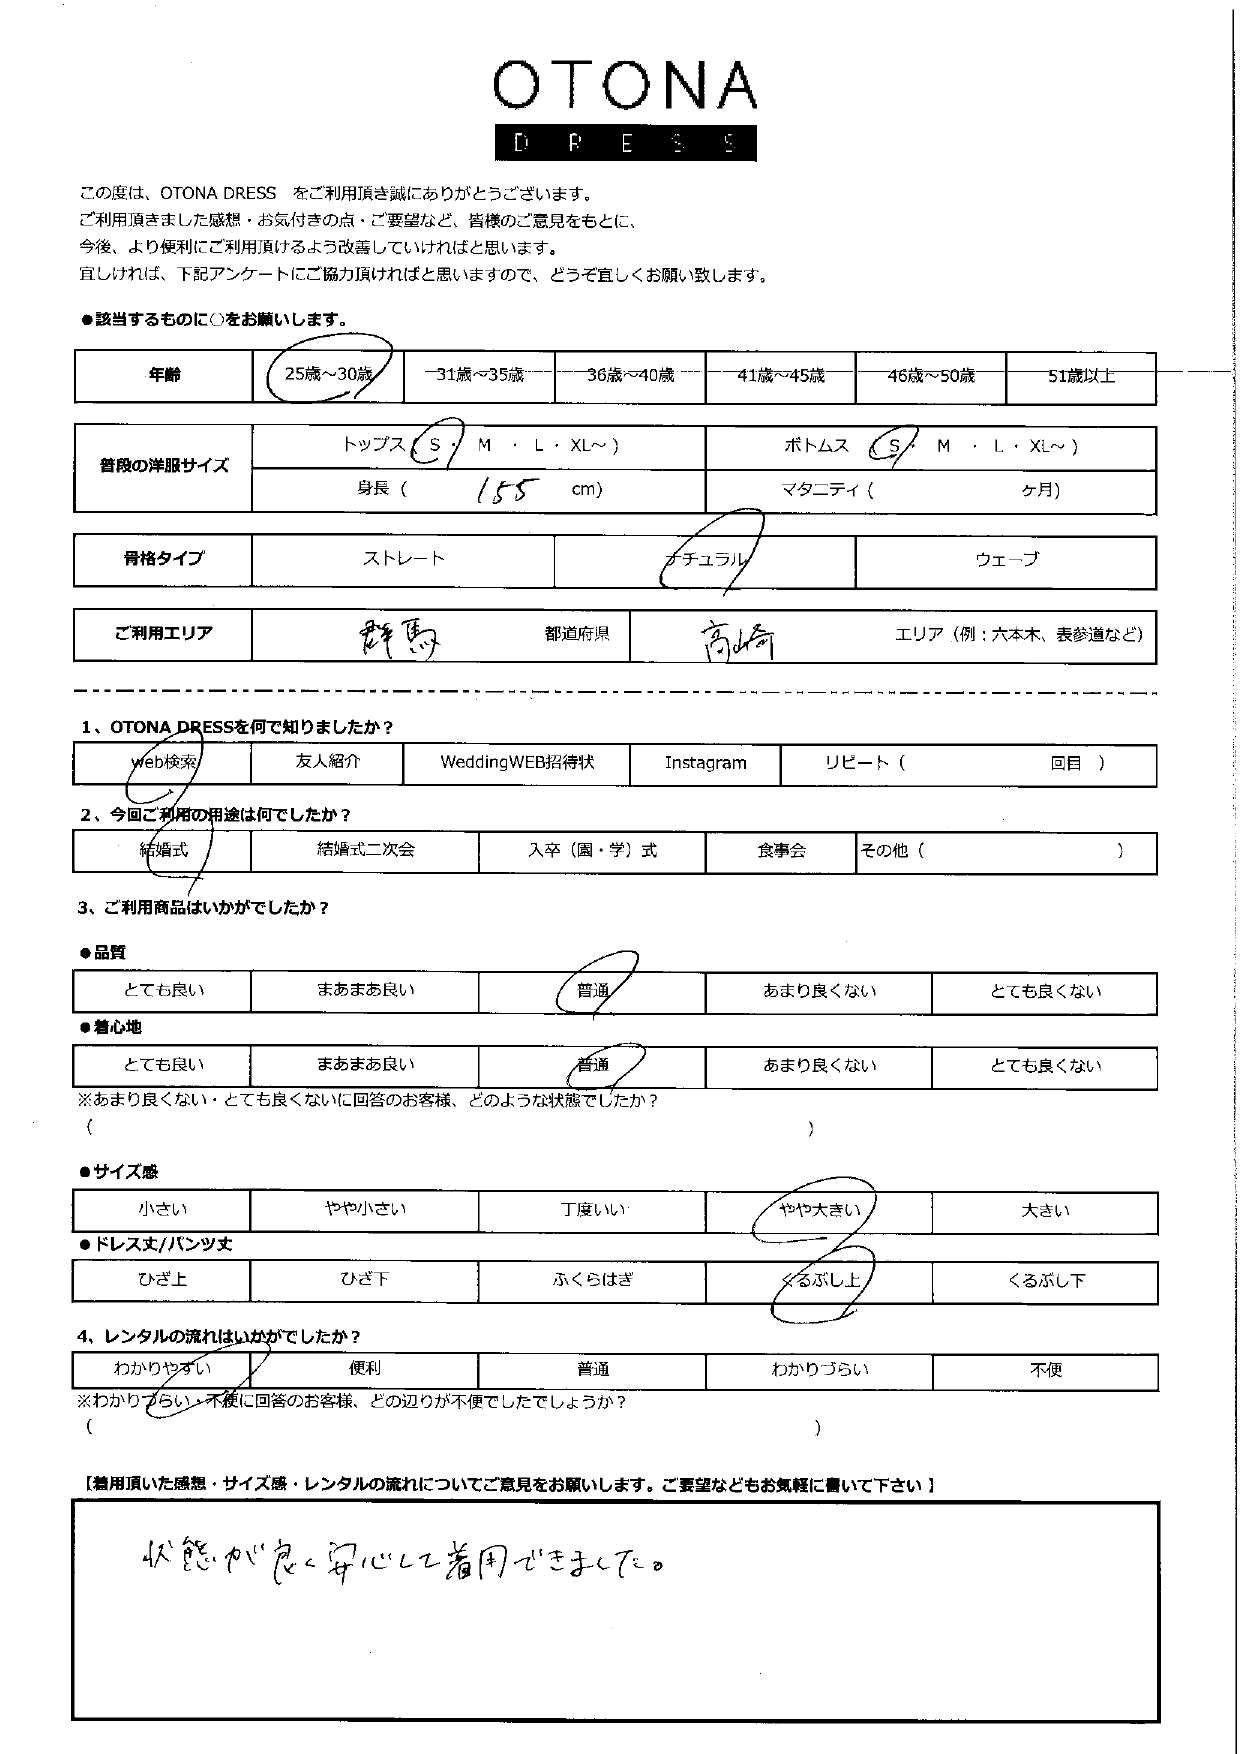 OTONA
DRESS
この度は、OTONA DRESS をご利用頂き誠にありがとうございます。
ご利用頂きました感想・お気付きの点・ご要望など、皆様のご意見をもとに、
今後、より便利にご利用頂けるよう改善していければと思います。
宜しければ、下記アンケートにご協力頂ければと思いますので、どうぞ宜しくお願い致します。
●該当するものに○をお願いします。
年齢 25歳～30歳 31歳～35歳 36歳～40歳 41歳～45歳 46歳～50歳 51歳以上
普段の洋服サイズ トップス ( S ・ M ・ L ・ XL～ ) ボトムス ( S ・ M ・ L ・ XL～ )
身長 ( 155 cm) マタニティ ( ヶ月)
骨格タイプ ストレート ナチュラル ウェーブ
ご利用エリア 群馬 都道府県 高崎 エリア（例：六本木、表参道など）
1、OTONA DRESSを何で知りましたか？
web検索 友人紹介 WeddingWEB招待状 Instagram リピート ( 回目 )
2、今回ご利用の用途は何でしたか？
結婚式 結婚式二次会 入卒（園・学）式 食事会 その他 ( )
3、ご利用商品はいかがでしたか？
●品質
とても良い まあまあ良い 普通 あまり良くない とても良くない
●着心地
とても良い まあまあ良い 普通 あまり良くない とても良くない
※あまり良くない・とても良くないに回答のお客様、どのような状態でしたか？
( )
●サイズ感
小さい やや小さい 丁度いい やや大きい 大きい
●ドレス丈/パンツ丈
ひざ上 ひざ下 ふくらはぎ くるぶし上 くるぶし下
4、レンタルの流れはいかがでしたか？
わかりやすい 便利 普通 わかりづらい 不便
※わかりづらい・不便に回答のお客様、どの辺りが不便でしたでしょうか？
( )
【着用頂いた感想・サイズ感・レンタルの流れについてご意見をお願いします。ご要望などもお気軽に書いて下さい】
状態が良く安心して着用できました。